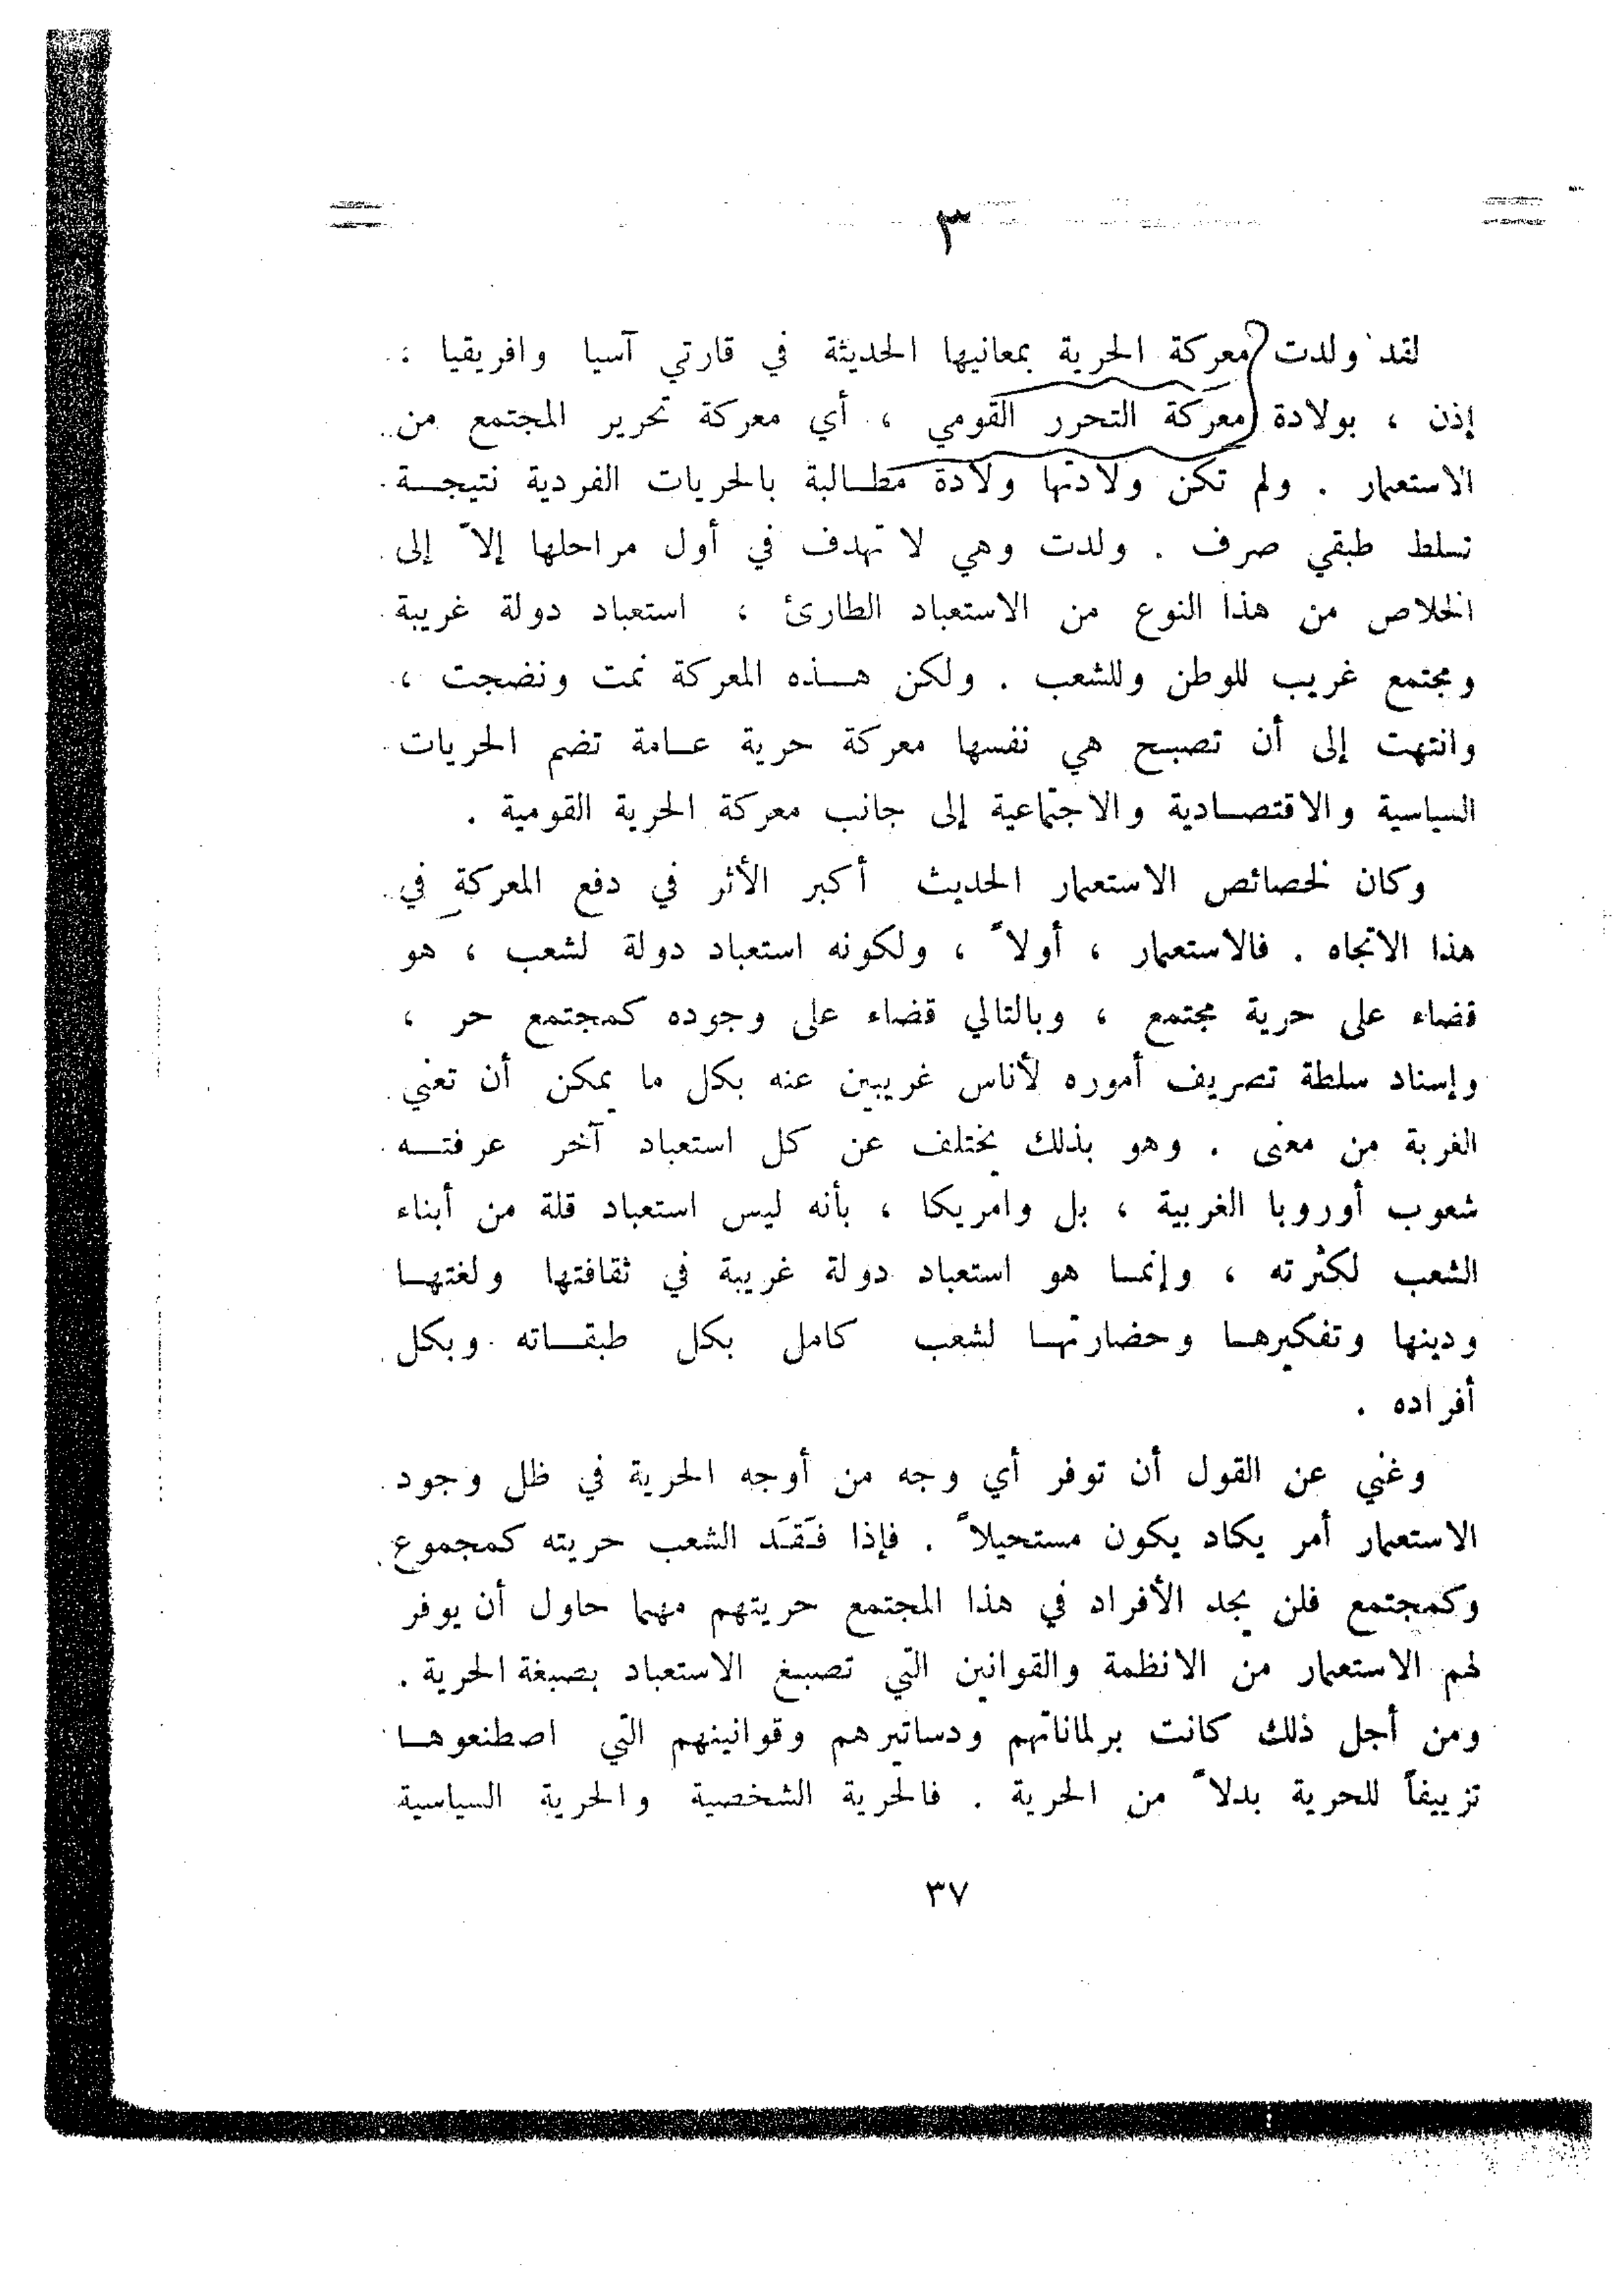 ٣
لقد ولدت معركة الحرية بمعانيها الحديثة في قارتي آسيا وافريقيا :
إذن ، بولادة معركة التحرر القومي ، أي معركة تحرير المجتمع من
الاستعمار . ولم تكن ولادتها ولادة مطالبة بالحريات الفردية نتيجة
تسلط طبقي صرف . ولدت وهي لا تهدف في أول مراحلها إلاّ إلى
الخلاص من هذا النوع من الاستعباد الطارئ ، استعباد دولة غريبة
ومجتمع غريب للوطن وللشعب . ولكن هذه المعركة نمت ونضجت ،
وانتهت إلى أن تصبح هي نفسها معركة حرية عامة تضم الحريات
السياسية والاقتصادية والاجتماعية إلى جانب معركة الحرية القومية .
وكان لخصائص الاستعمار الحديث أكبر الأثر في دفع المعركة في
هذا الاتجاه . فالاستعمار ، أولاً ، ولكونه استعباد دولة لشعب ، هو
قضاء على حرية مجتمع ، وبالتالي قضاء على وجوده كمجتمع حر ،
وإسناد سلطة تصريف أموره لأناس غريبين عنه بكل ما يمكن أن تعني
الغربة من معنى . وهو بذلك يختلف عن كل استعباد آخر عرفته
شعوب أوروبا الغربية ، بل وامريكا ، بأنه ليس استعباد قلة من أبناء
الشعب لكثرته ، وإنما هو استعباد دولة غريبة في ثقافتها ولغتها
ودينها وتفكيرها وحضارتها لشعب كامل بكل طبقاته وبكل
أفراده .
وغني عن القول أن توفر أي وجه من أوجه الحرية في ظل وجود
الاستعمار أمر يكاد يكون مستحيلاً . فإذا فَقَد الشعب حريته كمجموع
وكمجتمع فلن يجد الأفراد في هذا المجتمع حريتهم مهما حاول أن يوفر
لهم الاستعمار من الانظمة والقوانين التي تصبغ الاستعباد بصبغة الحرية .
ومن أجل ذلك كانت برلماناتهم ودساتيرهم وقوانينهم التي اصطنعوها
تزييفاً للحرية بدلاً من الحرية . فالحرية الشخصية والحرية السياسية
٣٧